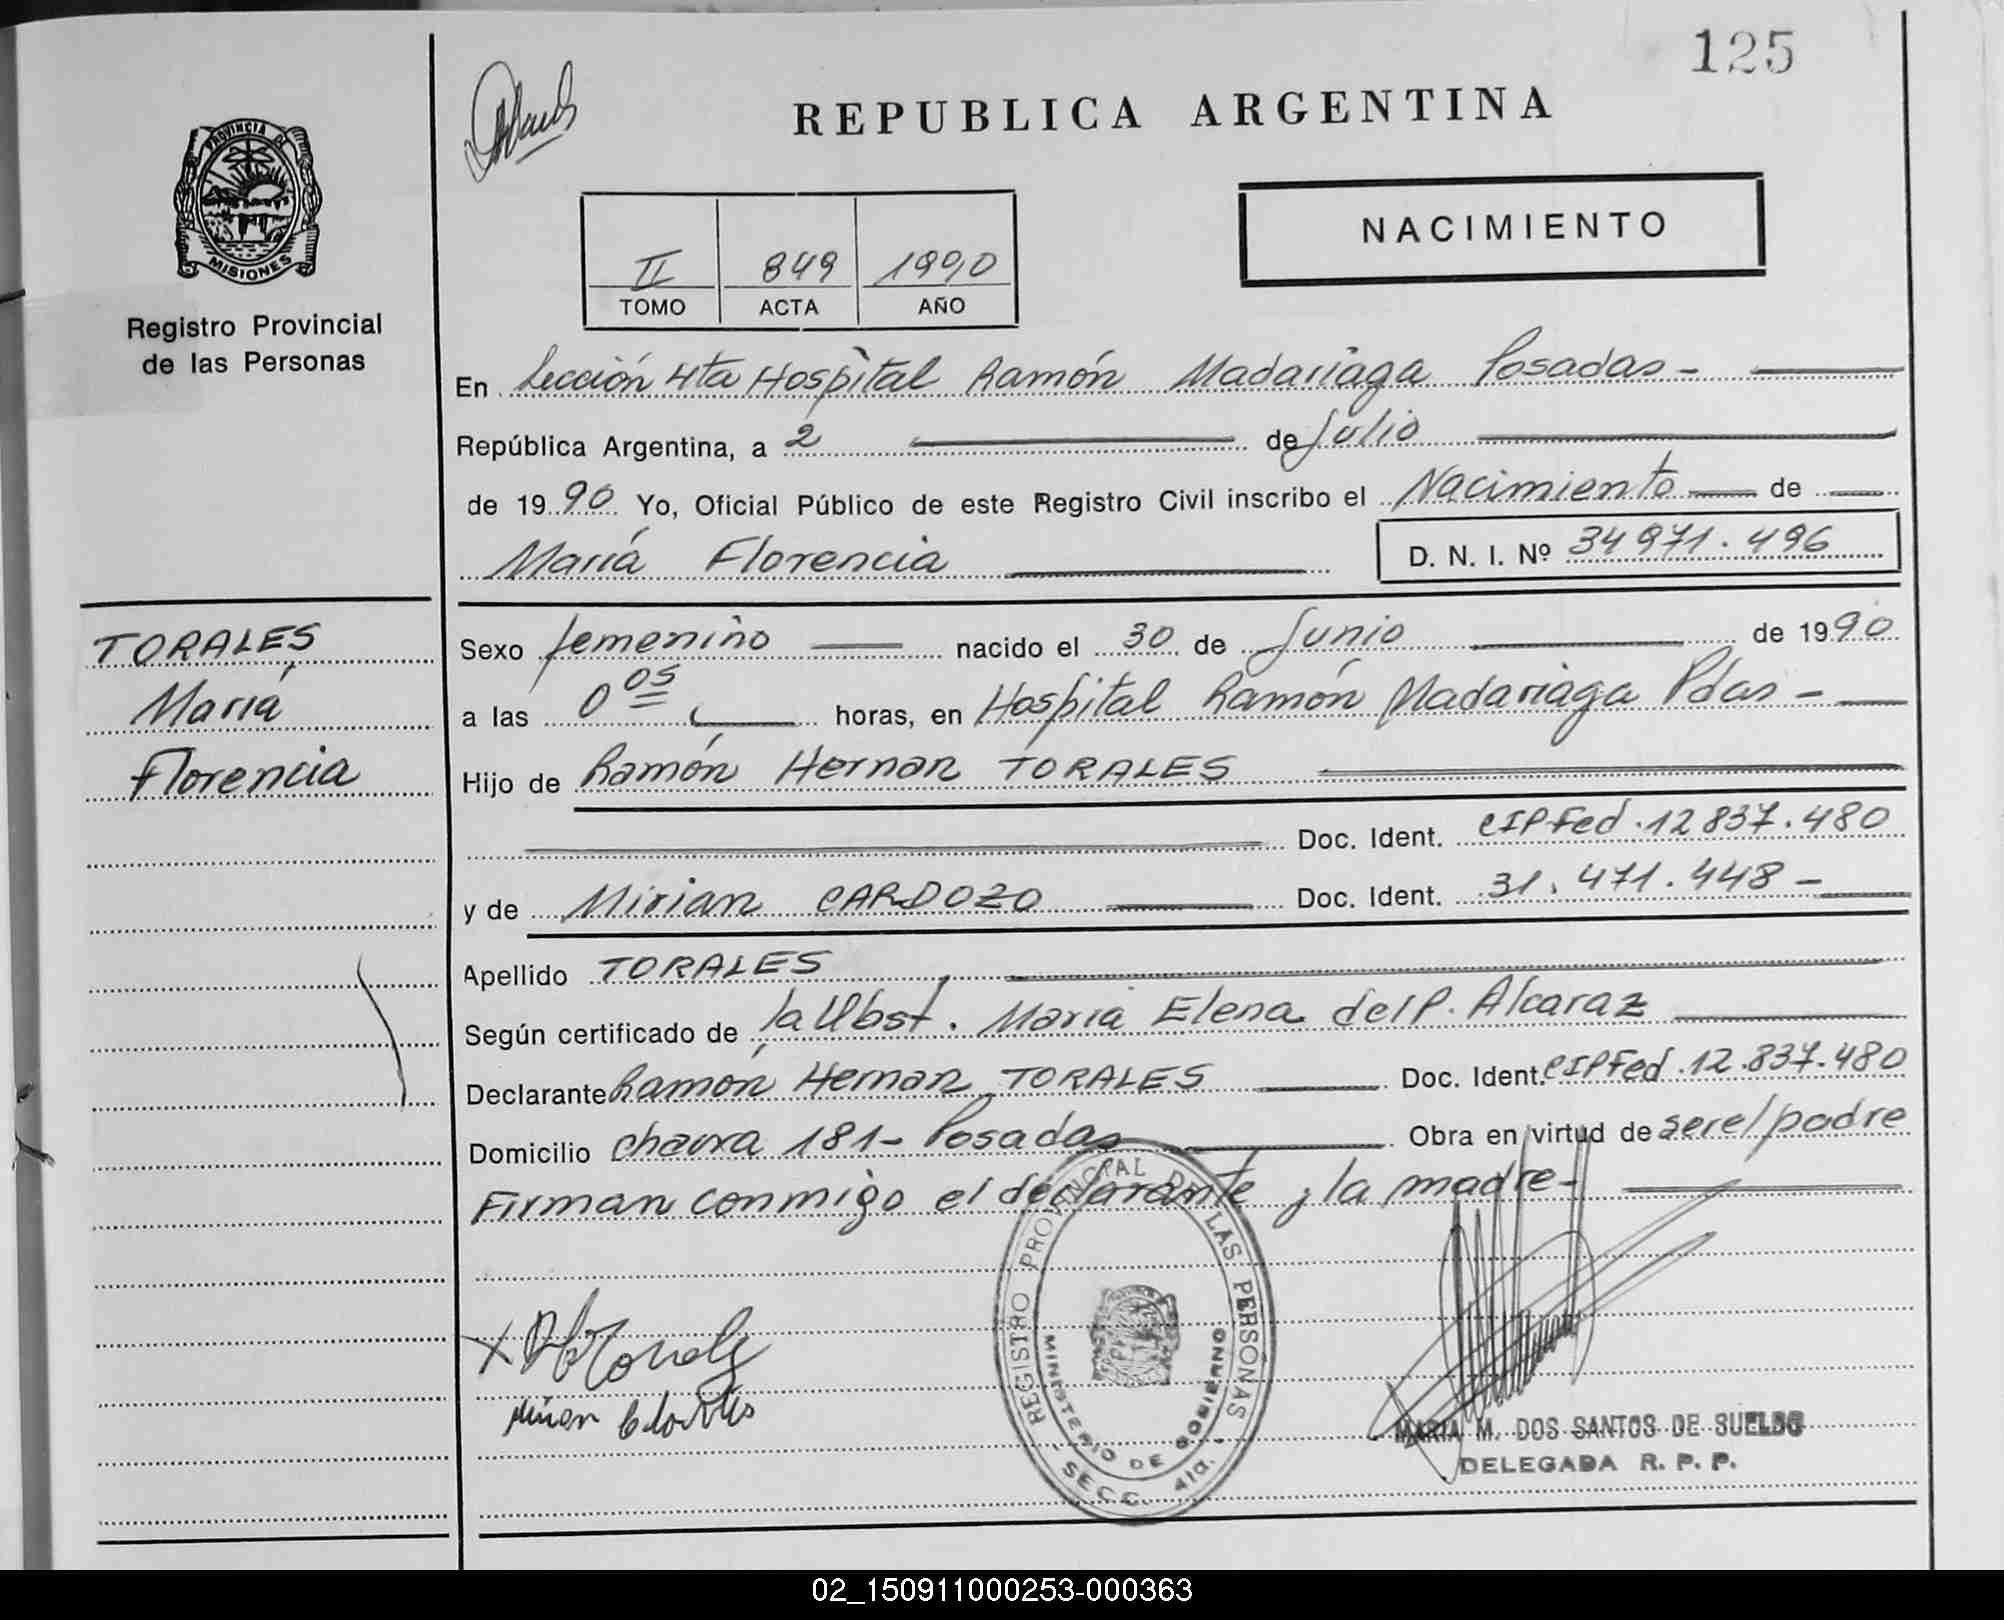 125
REPUBLICA ARGENTINA
PROVINCIA DE
MISIONES
Registro Provincial
de las Personas
NACIMIENTO
II 849 1990
TOMO ACTA AÑO
En Sección 4ta Hospital Ramón Madariaga Posadas -
República Argentina, a 2 de Julio
de 19 90 Yo, Oficial Público de este Registro Civil inscribo el Nacimiento de
María Florencia D. N. I. Nº 34971.496
TORALES
María
Florencia
Sexo femenino nacido el 30 de Junio de 19 90
a las 0 05 horas, en Hospital Ramón Madariaga Pdas -
Hijo de Ramón Hernan TORALES
Doc. Ident. CIPFed.12837.480
y de Mirian CARDOZO Doc. Ident. 31.471.448 -
Apellido TORALES
Según certificado de la Obst. María Elena del P. Alcaraz
Declarante Ramón Hernan TORALES Doc. Ident. CIPFed.12.837.480
Domicilio 181 - Posadas Obra en virtud de ser el padre
Firman conmigo el declarante y la madre -
REGISTRO PROVINCIAL DE LAS PERSONAS
MINISTERIO DE GOBIERNO
SECC. 4ta.
MARIA M. DOS SANTOS DE SUELDO
DELEGADA R. P. P.
02_150911000253-000363